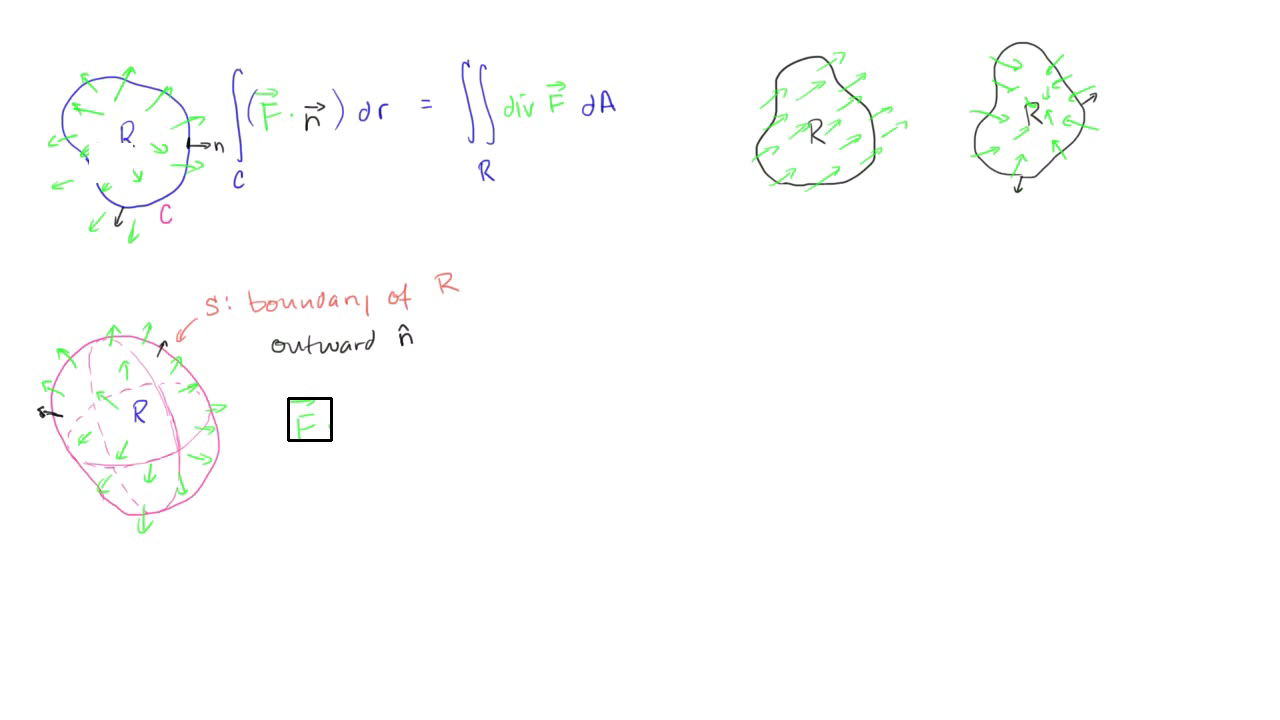 R.
n
C
∫_C (F⃗ · n⃗) dr = ∬_R div F⃗ dA
R
R
S: boundary of R
outward n̂
R
F⃗ ·